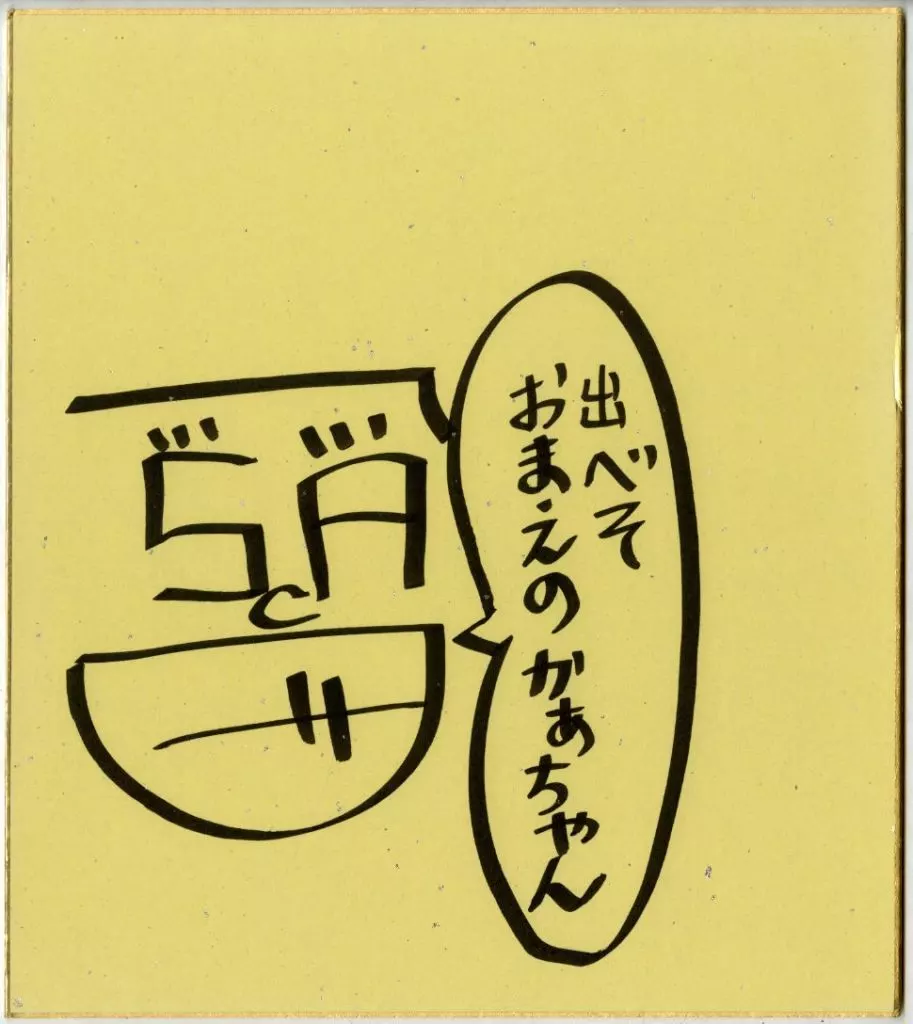 出べそ
おまえのかあちゃん
SA